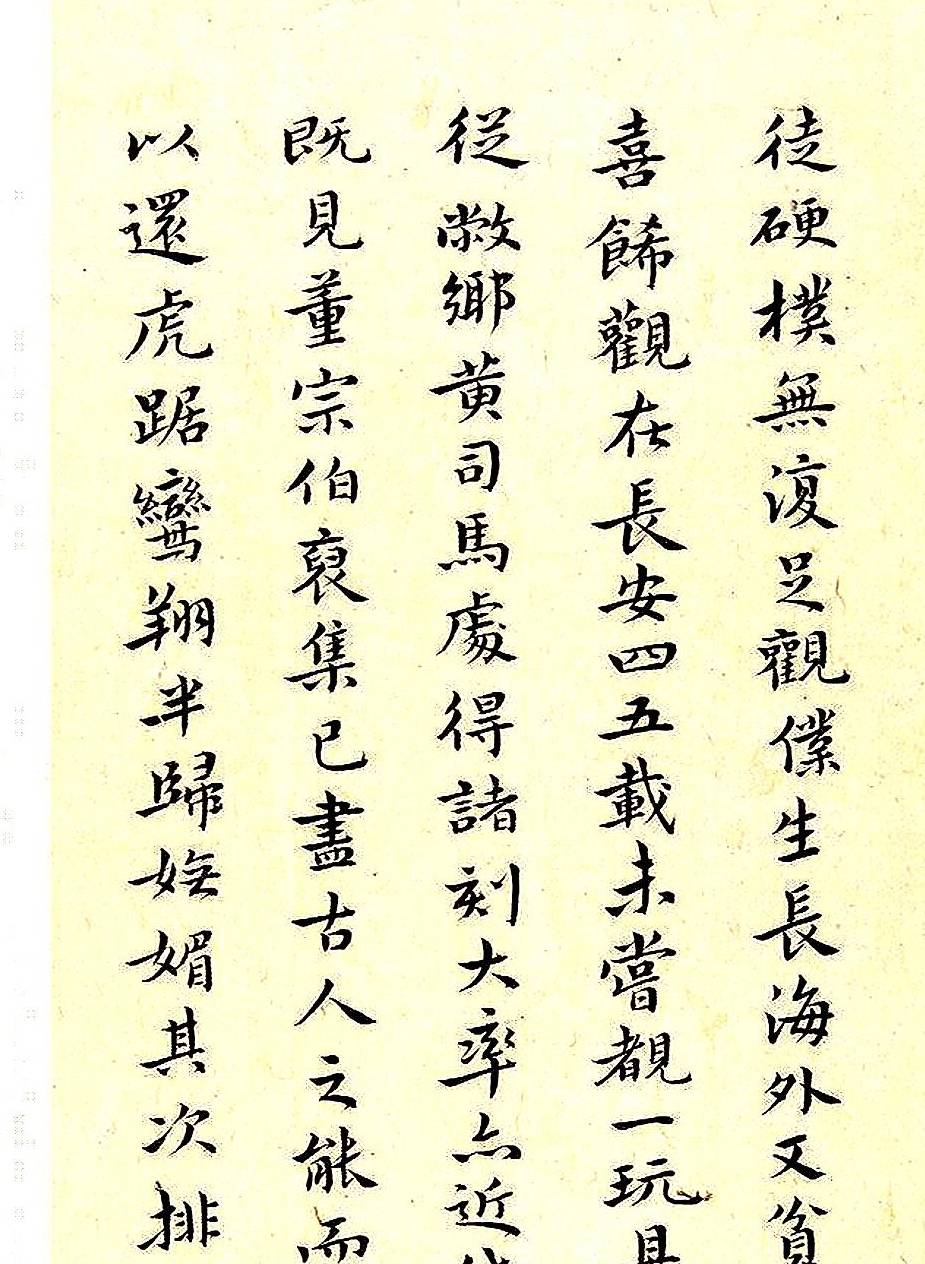 徒硬樸無復足觀僕生長海外又貧
喜餙觀在長安四五載未嘗覩一玩具
從敝鄉黄司馬處得諸刻大率亦近
既見董宗伯裒集已盡古人之能而
以還虎踞鸞翔半歸嫵媚其次排